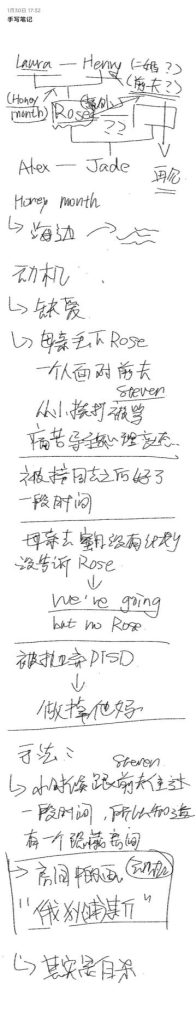 1月30日 17:32
手写笔记
Laura — Henny (二婚?)
(前夫?)
(Honey month)
Rose
??
Alex — Jade
Honey month
↳ 海边
动机
↳ 缺爱
↳ 母亲丢下Rose
一个人面对前夫
Steven
从小挨打
痛苦导致心理变态
被接回去之后好了
一段时间
母亲去蜜月没有
没告诉Rose
↓
we're going
but no Rose
被抛弃PTSD
↓
做掉他妈
手法：
Steven
↳ 小时候跟前夫住过
一段时间，所以知道
有一个隐藏房间
↳ 房间中的画
"俄狄浦斯"
↳ 其实是自杀